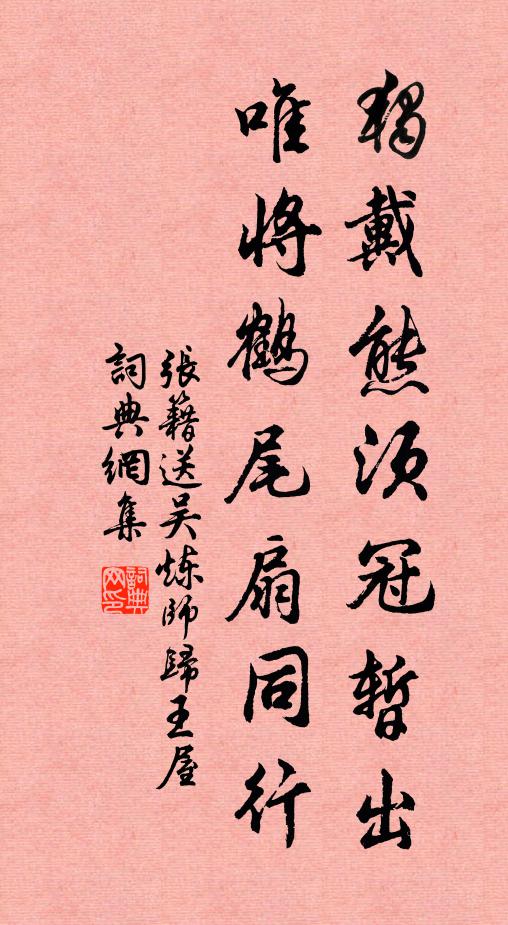 獨戴熊須冠暫出
唯將鶴尾扇同行
張籍送吴炼師歸王屋
詞典網集
詞典网印